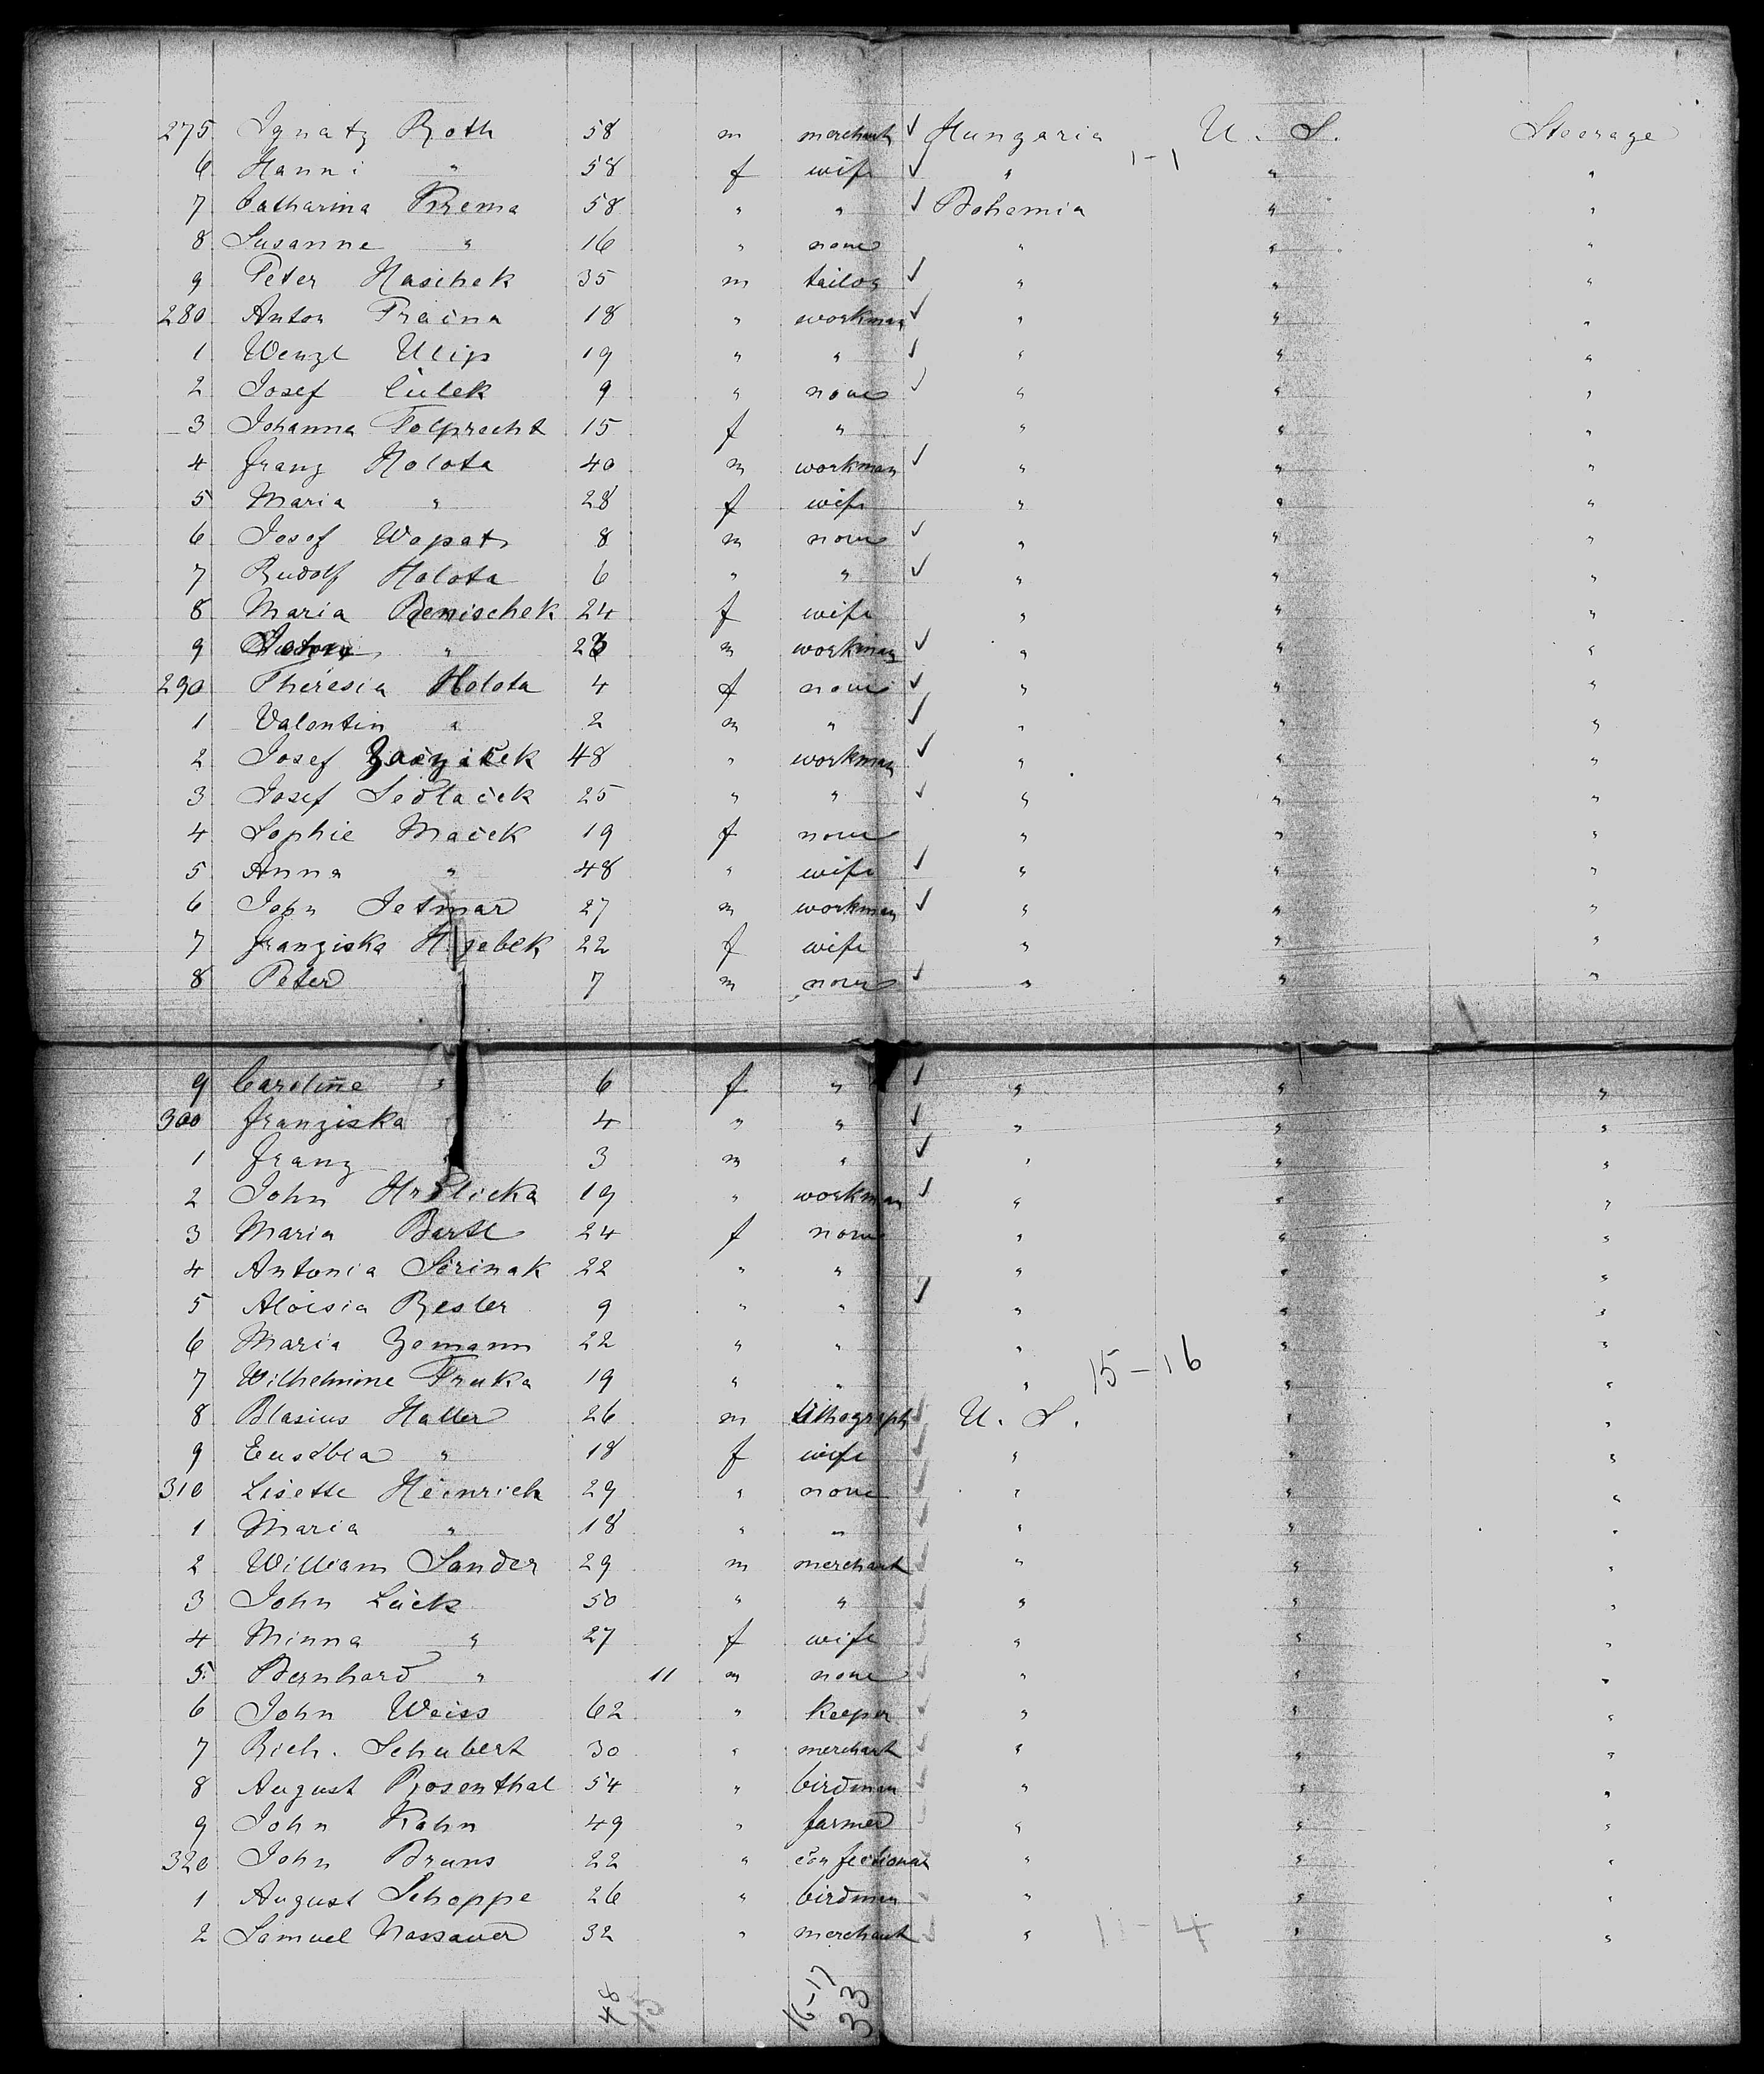 275 Ignatz Roth 58 m merchant ✓ Hungaria U. S. Steerage
6 Hanni " 58 f wife ✓ " 1-1 " "
7 Catharina Krema 58 " " ✓ Bohemia " "
8 Susanne " 16 " none " " "
9 Peter Haschek 35 m tailor ✓ " " "
280 Anton 18 " workman ✓ " " "
1 Wenzl Ulip 19 " " ✓ " " "
2 Josef Culek 9 " none ✓ " " "
3 Johanna Folprecht 15 f " " " "
4 Franz Holota 40 m workman ✓ " " "
5 Maria " 28 f wife " " "
6 Josef Wopat 8 m none ✓ " " "
7 Rudolf Holota 6 " " ✓ " " "
8 Maria Benischek 24 f wife " " "
9 " m workman ✓ " " "
290 Theresia Holota 4 f none ✓ " " "
1 Valentin " 2 m " ✓ " " "
2 Josef 48 " workman ✓ " " "
3 Josef Sedlaček 25 " " ✓ " " "
4 Sophie Maček 19 f none " " "
5 Anna " 48 " wife ✓ " " "
6 John Jetmar 27 m workman ✓ " " "
7 Franziska 22 f wife " " "
8 Peter 7 m none ✓ " " "
9 Caroline " 6 f " ✓ " " "
300 Franziska 4 " " ✓ " " "
1 Franz 3 m " ✓ " " "
2 John Hrdlicka 19 " workman ✓ " " "
3 Maria Bartl 24 f none " " "
4 Antonia 22 " " " " "
5 Aloisia Resler 9 " " ✓ " " "
6 Maria Zemann 22 " " " " "
7 Wilhelmine Fruka 19 " " " 15-16 " "
8 Blasius Haller 26 m lithograph ✓ U. S. " "
9 Eusebia " 18 f wife ✓ " " "
310 Lisette Heinrich 29 " none ✓ " " "
1 Maria " 18 " " ✓ " " "
2 William Sander 29 m merchant ✓ " " "
3 John Lück 50 " " ✓ " " "
4 Minna " 27 f wife ✓ " " "
5 Bernhard " 11 m none ✓ " " "
6 John Weiss 62 " keeper ✓ " " "
7 Rich. Schubert 30 " merchant ✓ " " "
8 August Rosenthal 54 " birdman ✓ " " "
9 John Kahn 49 " farmer " " "
320 John Bruns 22 " confectioner " " "
1 August Schoppe 26 " birdman " " "
2 Samuel Nassauer 32 " merchant ✓ " 11-4 " "
48
16-17
33